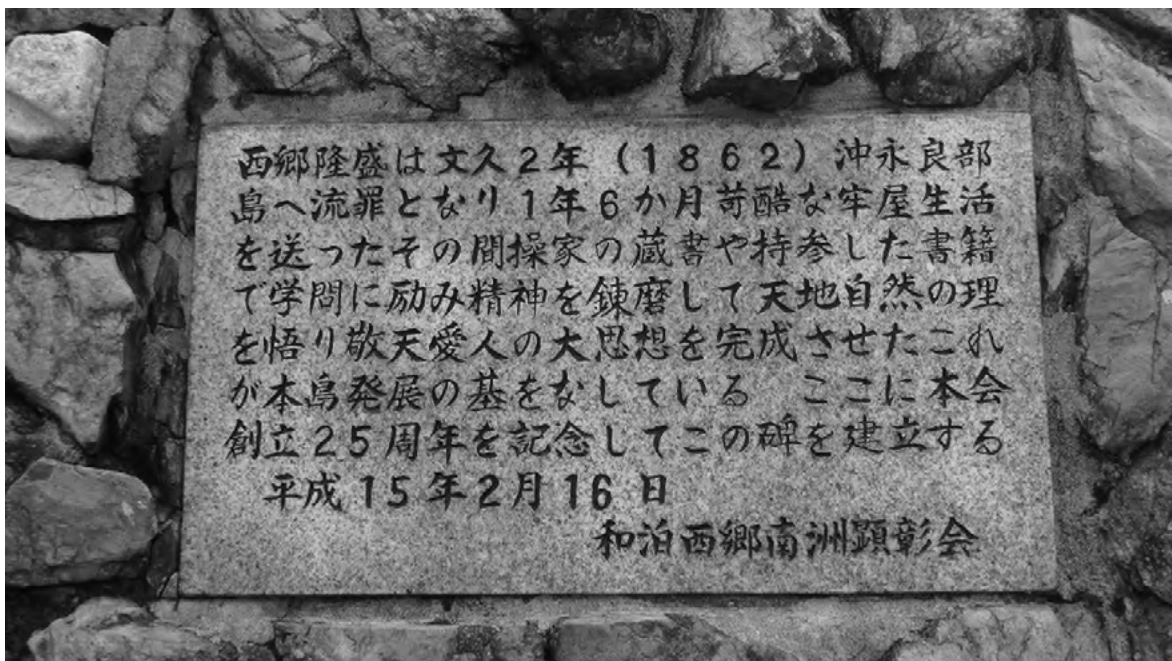 西郷隆盛は文久2年(1862)沖永良部
島へ流罪となり1年6か月苛酷な牢屋生活
を送ったその間操家の蔵書や持参した書籍
で学問に励み精神を錬磨して天地自然の理
を悟り敬天愛人の大思想を完成させたこれ
が本島発展の基をなしている　ここに本会
創立25周年を記念してこの碑を建立する
平成15年2月16日
和泊西郷南洲顕彰会